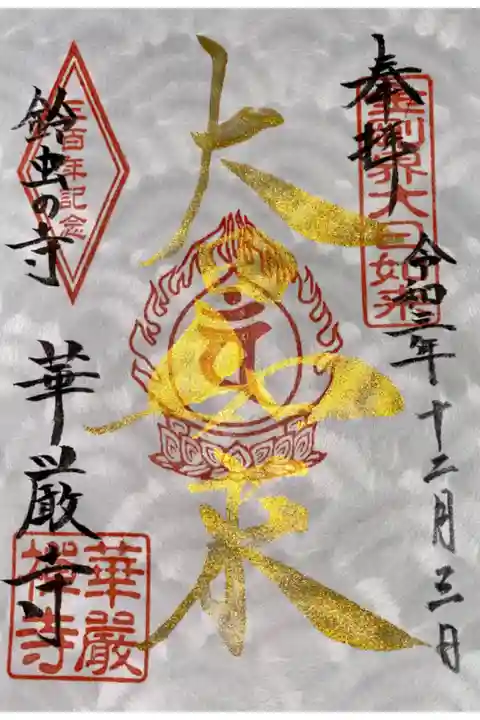 奉拝
金剛界大日如来
令和二年十二月三日
大日如来
三百年記念
鈴虫の寺
華厳寺
華嚴
禅寺